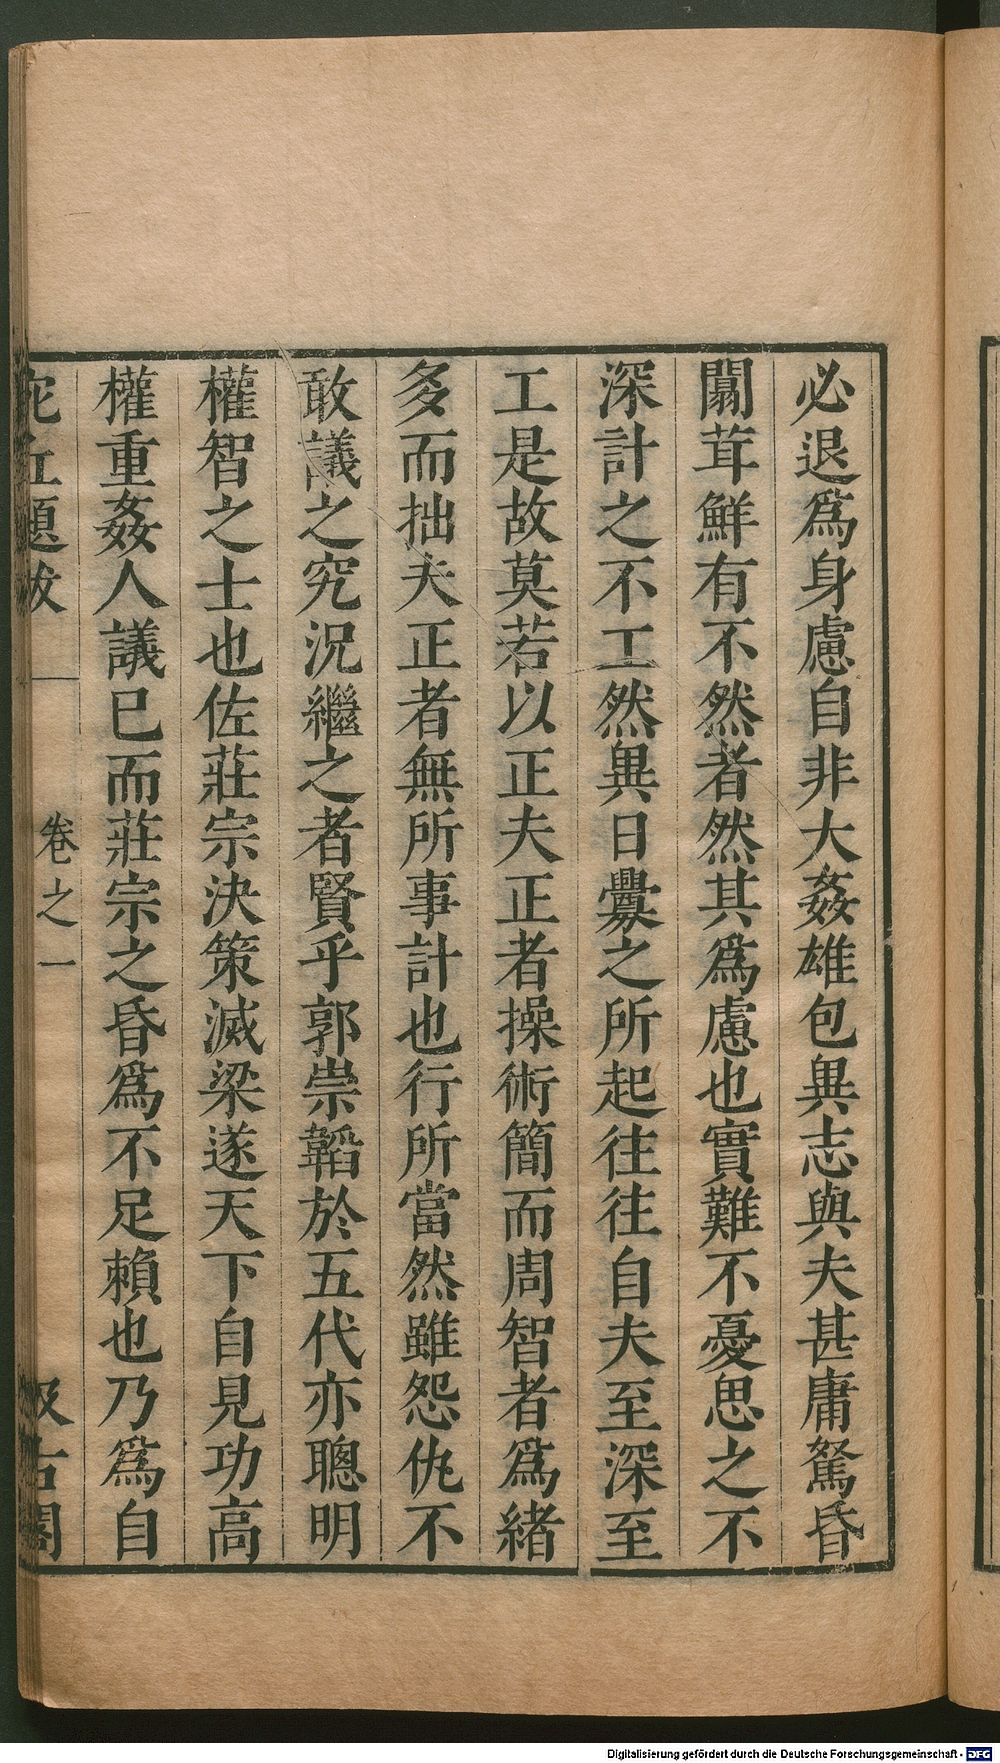 必退爲身慮自非大姦雄包異志與夫甚庸駑昏
闒茸鮮有不然者然其爲慮也實難不憂思之不
深計之不工然異日釁之所起往往自夫至深至
工是故莫若以正夫正者操術簡而周智者爲緒
多而拙夫正者無所事計也行所當然雖怨仇不
敢議之究況繼之者賢乎郭崇韜於五代亦聰明
權智之士也佐莊宗決策滅梁遂天下自見功高
權重姦人議已而莊宗之昏爲不足賴也乃爲自
宛丘題跋 卷之一 汲古閣
Digitalisierung gefördert durch die Deutsche Forschungsgemeinschaft - DFG